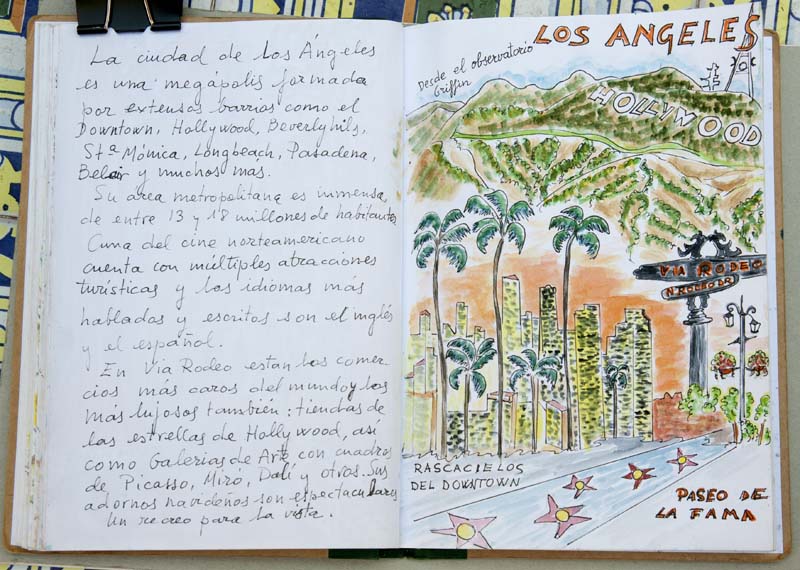 La ciudad de Los Ángeles
es una megápolis formada
por extensos barrios como el
Downtown, Hollywood, Beverlyhils,
Stª Mónica, Longbeach, Pasadena,
Belair y muchos mas.
Su área metropolitana es inmensa,
de entre 13 y 18 millones de habitantes
Cuna del cine norteamericano
cuenta con múltiples atracciones
turísticas y los idiomas más
hablados y escritos son el inglés
y el español.
En Via Rodeo estan los comer-
cios más caros del mundo y los
más lujosos también: tiendas de
las estrellas de Hollywood, así
como Galerias de Arte con cuadros
de Picasso, Miro, Dalí y otros. Sus
adornos navideños son espectaculares
Un recreo para la vista.
LOS ANGELES
Desde el observatorio
Griffin
HOLLYWOOD
VIA RODEO
N RODEO DR
RASCACIELOS
DEL DOWNTOWN
PASEO DE
LA FAMA